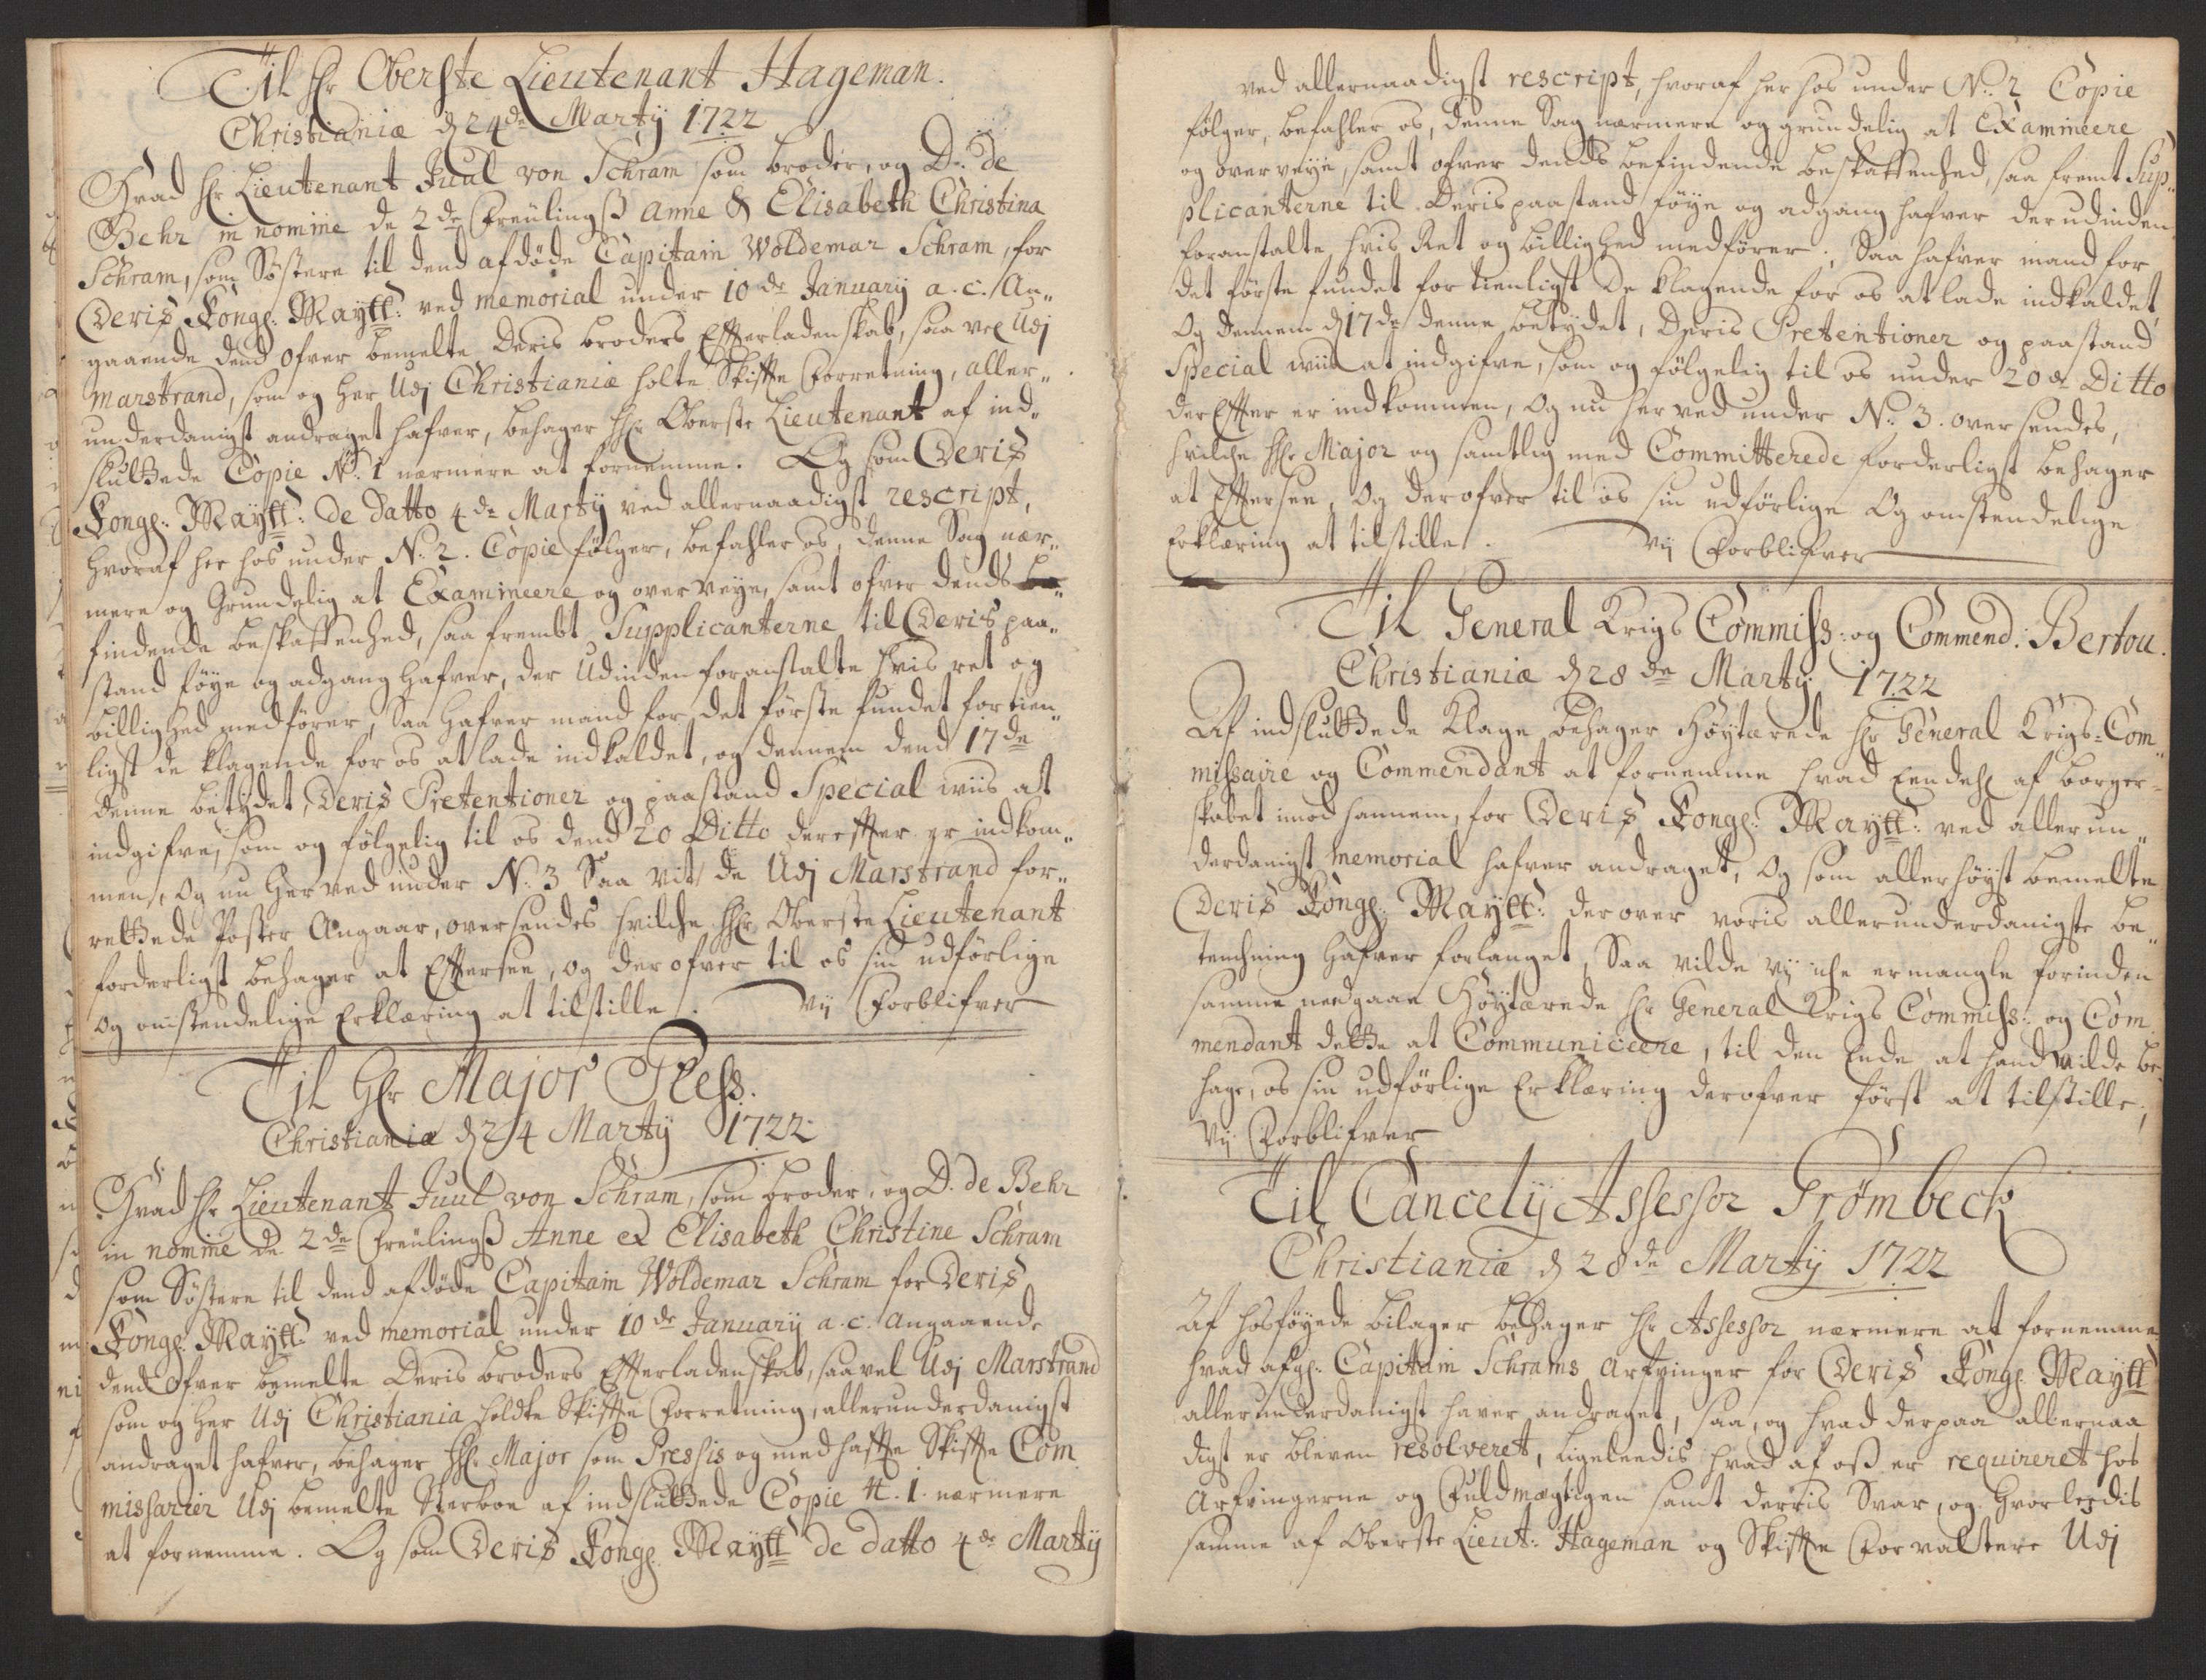 Til Hr Oberste Lieutenant Hageman.
Christiania d 24de Martij 1722
Hvad Hr Lieutenant Juul von Schram som broder, og D. de
Behr in nomine de 2de Freulingß Anne & Elisabeth Christina
Schram, som Söstere til dend afdöde Capitain Woldemar Schram, for
Deris Kongl: Maytt: ved memorial under 10de January a. c. An„
gaaende dend ofver bemelte Deris broders Effterladenskab, saa vel Udj
Marstrand, som og her Udj Christiania holte Skiffte Forretning, aller„
underdanigst andraget hafver, behager Hr Oberste Lieutenant af ind„
sluttede Copie No. 1 nærmere at fornemme. Og som Deris
Kongl: Maytt: de datto 4de Martij ved allernaadigst rescript,
hvoraf her hos under N: 2. Copie fölger, befahler os, denne Sag nær„
mere og Grundelig at Examineere og overveye, samt ofver dends be„
findende beskaffenhed, saa frembt Supplicanterne til Deris paa„
stand föye og adgang hafver, der Udinden foranstalte hvis ret og
billighed medförer, Saa hafver mand for det förste fundet fortien„
ligst de klagende for os at lade indkaldet, og dennem dend 17de
denne betydet, Deris Pretentioner og paastand Special viis at
indgifve, som og fölgelig til os dend 20 Ditto dereffter er indkom„
men, Og nu herved under N: 3 Saa vit de Udj Marstrand for„
rettede Poster Angaar, oversendes hvilche Hr Oberste Lieutenant
forderligst behager at Efftersee, og derofver til os sin udförlige
og omstendelige Erklæring at tilstille. Vij Forblifver
Til Hr Major Pless.
Christiania d 24 Martij 1722
Hvad Hr Lieutenant Juul von Schram, som broder, og D. de Behr
in nomine de 2de Freulingß Anne et Elisabeth Christine Schram
som Söstere til dend afdöde Capitain Woldemar Schram for Deris
Kongl: Maytt: ved memorial under 10de January a. c. angaaende
dend ofver bemelte Deris broders Effterladenskab, saavel Udj Marstrand
som og her Udj Christiania holdte Skiffte Forretning, allerunderdanigst
andraget hafver, behager Hr Major som Pressis og medhaffte Skiffte Com
missarier Udj bemelte Sterboe af indsluttede Copie N. 1. nærmere
at fornemme. Og som Deris Kongl: Maytt de datto 4de Martij
ved allernaadigst rescript, hvoraf her hos under N: 2 Copie
fölger, befahler os, denne Sag nærmere og grundelig at Examineere
og overveye, samt ofver dends befindende beskaffenhed, saa fremt Sup„
plicanterne til Deris paastand föye og adgang hafver derudinden
foranstalte hvis Ret og billighed medförer; Saa hafver mand for
det förste fundet fortienligst de klagende for os at lade indkaldet,
Og dennem d 17de denne betydet, Deris Pretentioner og paastand
Special viis at indgifve, som og fölgelig til os under 20de Ditto
dereffter er indkommen, Og nu herved under N: 3. oversendes,
hvilche Hr Major og samtlig med Committerede forderligst behager
at Efftersee, Og derofver til os sin udförlige Og omstendelige
Erklæring at tilstille. Vij Forblifver
Til General Krigs Commiss: og Commend: Bertou.
Christiania d 28de Martij 1722
Af indsluttede Klage behager Höytærede Hr General Krigs-Com„
missaire og Commendant at fornemme hvad Eendeel af borger-
skabet imod hannem, for Deris Kongl: Maytt: ved allerun„
derdanigst memorial hafver andraget, Og som allerhöyst bemelte
Deris Kongl: Maytt: derover voris allerunderdanigste be„
tenchning hafver forlanget, Saa vilde vij iche ermangle forinden
samme neergaar Höytærede Hr General Krigs Commiss: og Com
mendant dette at Communiceere, til den Ende at hand vilde be„
hage, os sin udförlige Erklæring derofver först at tilstille,
Vij Forblifver
Til Cancelij Assessor Trömbeck
Christiania d 28de Martij 1722
Af hosföyede bilager behager Hr Assessor nærmere at fornemme
hvad afgl: Capitain Schrams Arfvinger for Deris Kongl: Maytt
allerunderdanigst haver andraget, saa, og hvad derpaa allernaa
digst er bleven resolveret, ligeleedis hvad af oß er requireret hos
Arfvingerne og Fuldmægtigen samt derris Svar, og hvorleedis
samme af Oberste Lieut: Hageman og Skiffte Forvaltere Udj